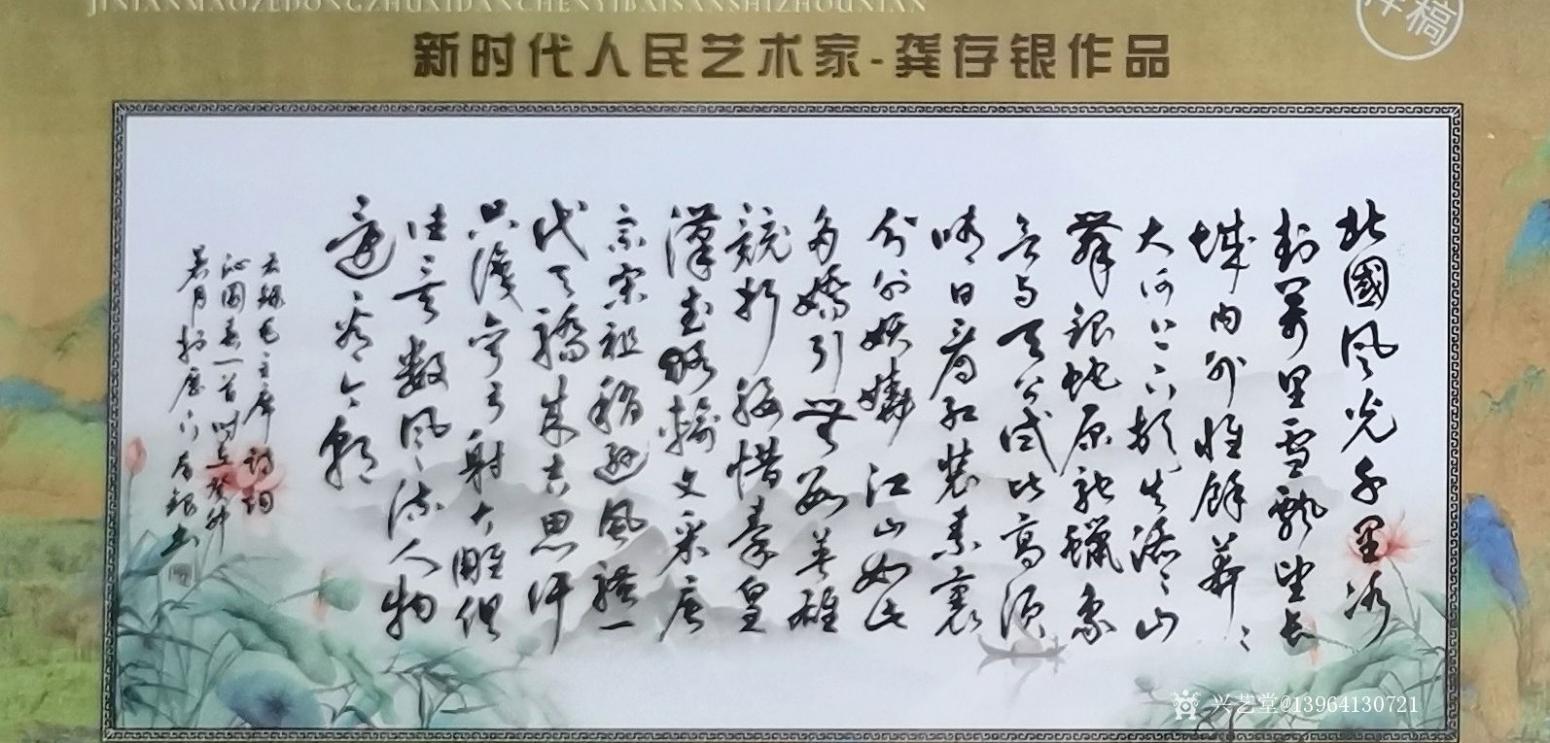 JINIANMAOZEDONGZHUXIDANCHENYIBAISANSHIZHOUNIAN
稿
新时代人民艺术家-龚存银作品
北國风光千里冰
封萬里雪飘望长
城内外惟餘莽〻
大河上下顿失滔〻山
舞银蛇原驰蠟象
欲与天公试比高须
晴日看红装素裹
分外妖娆江山如此
多嬌引無數英雄
競折腰惜秦皇
漢武略输文采唐
宗宋祖稍逊风騷一
代天骄成吉思汗
只識弯弓射大雕俱
往矣数风流人物
还看今朝
右録毛主席詩词
沁园春一首时在癸卯
月存银书
兴艺堂@13964130721